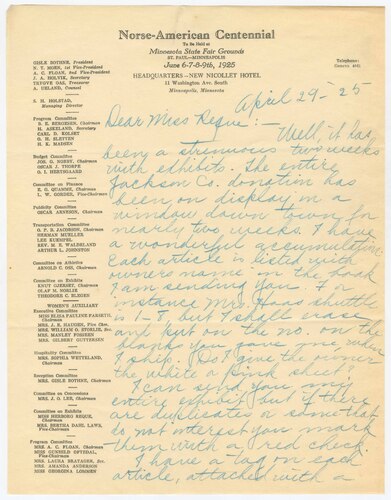 Norse-American Centennial
To Be Held at
Minnesota State Fair Grounds
ST. PAUL—MINNEAPOLIS
June 6-7-8-9th, 1925
HEADQUARTERS—NEW NICOLLET HOTEL
11 Washington Ave. South
Minneapolis, Minnesota
Telephone:
GISLE BOTHNE, President
N. T. MOEN, 1st Vice-President
A. C. FLOAN, 2nd Vice-President
J. A. HOLVIK, Secretary
TRYGVE OAS, Treasurer
A. UELAND, Counsel
S. H. HOLSTAD,
Managing Director
Program Committee
B. E. BERGESEN, Chairman
H. ASKELAND, Secretary
CARL D. KOLSET
O. H. SLETTEN
H. K. MADSEN
Budget Committee
MRS. G. NORBY, Chairman
OSCAR J. THORPE
O. I. HERTSGAARD
Committee on Finance
E. G. QUAMME, Chairman
L. W. GORDER, Vice-Chairman
Publicity Committee
OSCAR ARNESON, Chairman
Transportation Committee
O. P. B. JACOBSON, Chairman
HERMAN MUELLER
LEE KUEMPEL
REV. H. B. WALDELAND
ARTHUR L. JOHNSTON
Committee on Athletics
ARNOLD C. OSS, Chairman
Committee on Exhibits
KNUT GJERSET, Chairman
OLAF M. NORLIE
THEODORE C. BLEGEN
WOMEN'S AUXILIARY
Executive Committee
MISS ELISA PAULINE FARSETH,
Chairman
MRS. J. R. HAUGEN, Vice Chm.
MRS. WILLIAM O. STORLIE, Sec.
MRS. MANLEY FOSSEEN
MRS. GILBERT GUTTERSEN
Hospitality Committee
MRS. SOPHIA WHITELAND,
Chairman
Reception Committee
MRS. GISLE BOTHNE, Chairman
Committee on Concessions
MRS. J. O. LEE, Chairman
Committee on Exhibits
MISS HERBORG REQUE,
Chairman
MRS. BERTHA DAHL LAWS,
Vice-Chairman
Program Committee
MRS. A. C. FLOAN, Chairman
MISS GUNHILD OFTEDAL,
Vice-Chairman
MRS. LAURA BRATAGER, Sec.
MRS. AMANDA ANDERSON
MISS GEORGINA LOMMEN
April 29-25
Dear Miss Reque:—
Well, it has
been a strenuous two weeks
with exhibits. the entire
Jackson Co. donation has
been on display in a
window down town for
nearly two weeks. I have
a wonderful accumulation.
Each article is listed with
owners name in the book
I am sending you. For
instance Mrs. Haas shuttle
is 1-8, but I shall erase
and put on the no. on the
blank you gave me when
I ship. Do I give the owner
the white or pink sheet?
I can send you my
entire exhibit but if there
are duplicates or some that
do not interest you mark
them with a red check.
I have a tag on each
article, attached with a